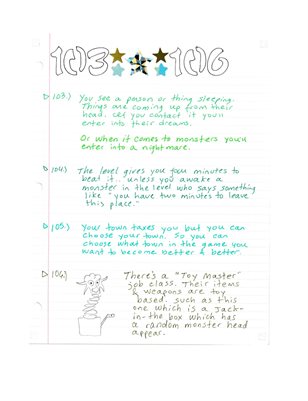 103 106
103.) You see a person or thing sleeping.
Things are coming up from their
head. Let you contact it you'll
enter into their dreams.
Or when it comes to monsters you'll
enter into a nightmare.
104.) The level gives you four minutes to
beat it.. unless you awake a
monster in the level who says something
like "you have two minutes to leave
this place."
105.) Your town taxes you but you can
choose your town. So you can
choose what town in the game you
want to become better & better.
106.) There's a "Toy Master"
job class. Their items
& weapons are toy
based. such as this
one which is a Jack-
in-the box which has
a random monster head
appear.